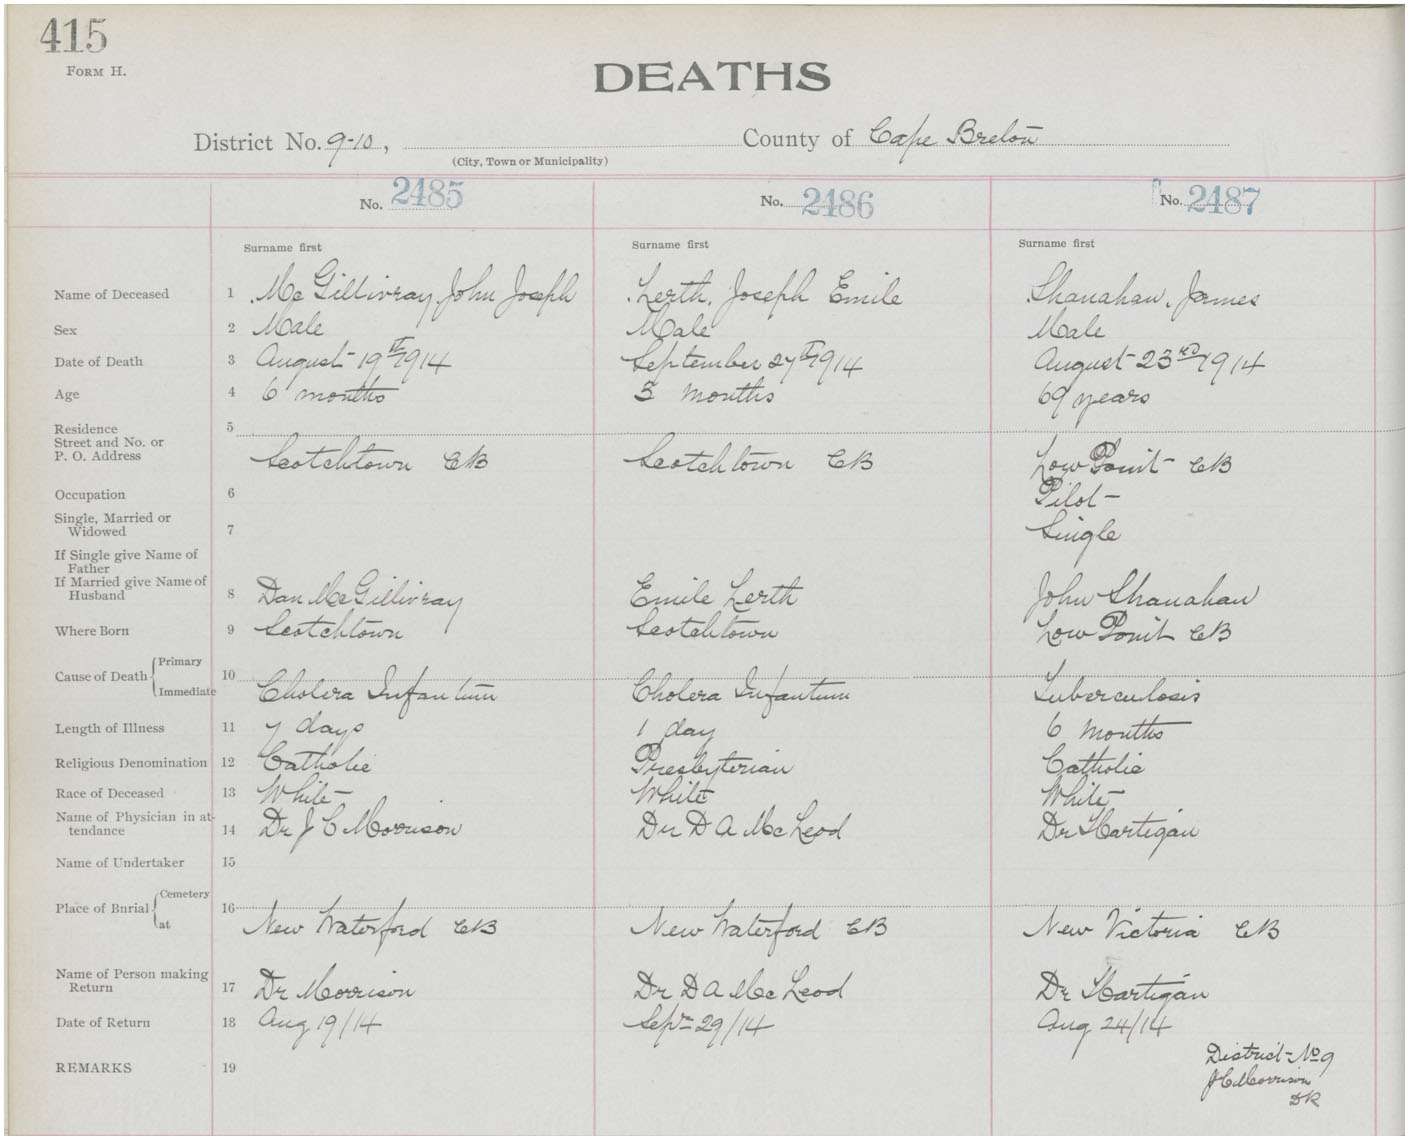 415
FORM H.
DEATHS
District No. 9-10, County of Cape Breton
(City, Town or Municipality)
No. 2485 No. 2486 No. 2487
Surname first Surname first Surname first
Name of Deceased 1 McGillivray, John Joseph Lerth, Joseph Emile Shanahan, James
Sex 2 Male Male Male
Date of Death 3 August 19th 1914 September 27th 1914 August 23rd 1914
Age 4 6 months 3 months 69 years
Residence 5
Street and No. or
P. O. Address Scotchtown CB Scotchtown CB Low Point CB
Occupation 6 Pilot
Single, Married or
Widowed 7 Single
If Single give Name of
Father
If Married give Name of
Husband 8 Dan McGillivray Emile Lerth John Shanahan
Where Born 9 Scotchtown Scotchtown Low Point CB
Cause of Death { Primary
Immediate 10 Cholera Infantum Cholera Infantum Tuberculosis
Length of Illness 11 7 days 1 day 6 months
Religious Denomination 12 Catholic Presbyterian Catholic
Race of Deceased 13 White White White
Name of Physician in at-
tendance 14 Dr J C Morrison Dr D A McLeod Dr Hartigan
Name of Undertaker 15
Place of Burial { Cemetery
at 16 New Waterford CB New Waterford CB New Victoria CB
Name of Person making
Return 17 Dr Morrison Dr D A McLeod Dr Hartigan
Date of Return 18 Aug 19/14 Sepr 29/14 Aug 24/14
REMARKS 19
District No 9
J C Morrison
DR